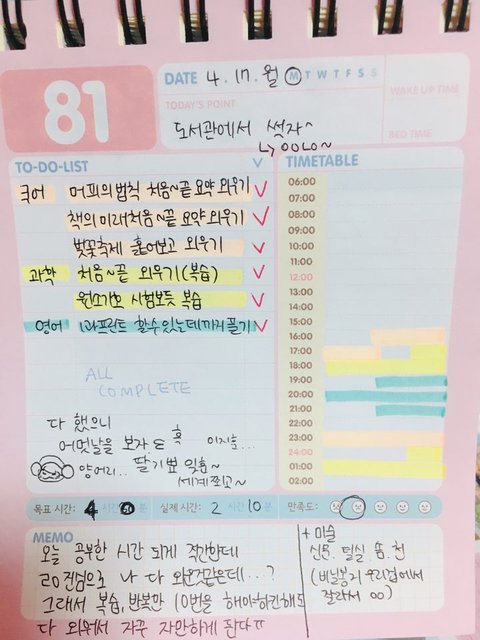 81
DATE 4. 17. 월 M T W T F S S
TODAY'S POINT
WAKE UP TIME
도서관에서 썩자~
↳ OOLO~
BED TIME
TO-DO-LIST
국어 머피의법칙 처음~끝 요약 외우기
책의미래처음~끝 요약 외우기
벚꽃축제 훑어보고 외우기
과학 처음~끝 외우기(복습)
원소기호 시험보듯 복습
영어 1과프린트 할수있는데까지풀기
ALL
COMPLETE
다 했으니
어멋날을 보자 흑 이지호...
양어리.. 딸기뽀
세계쪼고~
TIMETABLE
06:00
07:00
08:00
09:00
10:00
11:00
12:00
13:00
14:00
15:00
16:00
17:00
18:00
19:00
20:00
21:00
22:00
23:00
24:00
01:00
02:00
목표 시간: 4 시간 30 분
실제 시간: 2 시간 10 분
만족도:
MEMO
오늘 공부한 시간 되게 작간한데
레오 진심으로 나 다 외운것같은데...?
그래서 복습, 반복만 10번을 해야하긴해도
다 외워서 자꾸 자만하게 된다ㅠ
+ 미술
(비닐봉지 우리집에서
잘라서 oo)